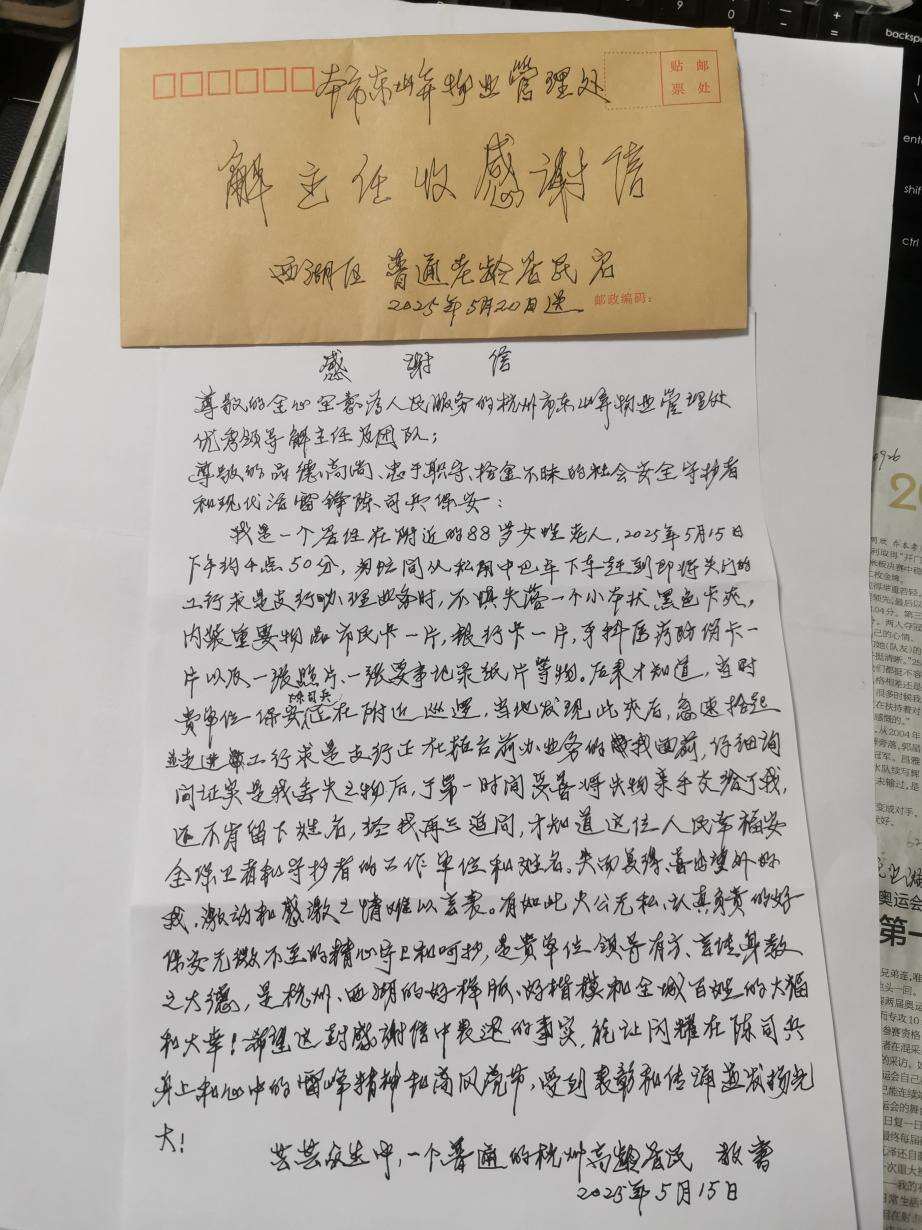 贴 邮
票 处
本市东山弄物业管理处
解主任收感谢信
西湖区 普通老龄居民启
2025年5月20日送
邮政编码：
感 谢 信
尊敬的全心全意为人民服务的杭州市东山弄物业管理处
优秀领导解主任及团队；
尊敬的品德高尚、忠于职守、拾金不昧的社会安全守护者
和现代活雷锋陈司兵保安：
我是一个居住在附近的88岁女性老人，2025年5月15日
下午约4点50分，匆忙间从私用中巴车下车赶到即将关门的
工行求是支行办理业务时，不慎失落一个小布状黑色卡夹，
内装重要物品市民卡一片，银行卡一片，牙科医药防保卡一
片以及一张照片、一张要事记录纸片等物。后来才知道，当时
贵单位保安陈司兵正在附近巡逻，当他发现此夹后，急速拾起
并走进工行求是支行正在柜台前办业务的我面前，仔细询
问证实是我丢失之物后，于第一时间妥善将失物亲手交给了我，
还不肯留下姓名，经我再三追问，才知道这位人民幸福安
全保卫者和守护者的工作单位和姓名。失而复得、喜出望外的
我，激动和感激之情难以言表。有如此大公无私、认真负责的好
保安无微不至的精心守卫和呵护，是贵单位领导有方、言传身教
之大德，是杭州、西湖的好样版、好楷模和全城百姓的大福
和大幸！希望这封感谢信中表述的事实，能让闪耀在陈司兵
身上和心中的雷峰精神和高风亮节，受到表彰和传诵并发扬光
大！
芸芸众生中，一个普通的杭州高龄居民 敬书
2025年5月15日
backspace
ctrl
第一
奥运会